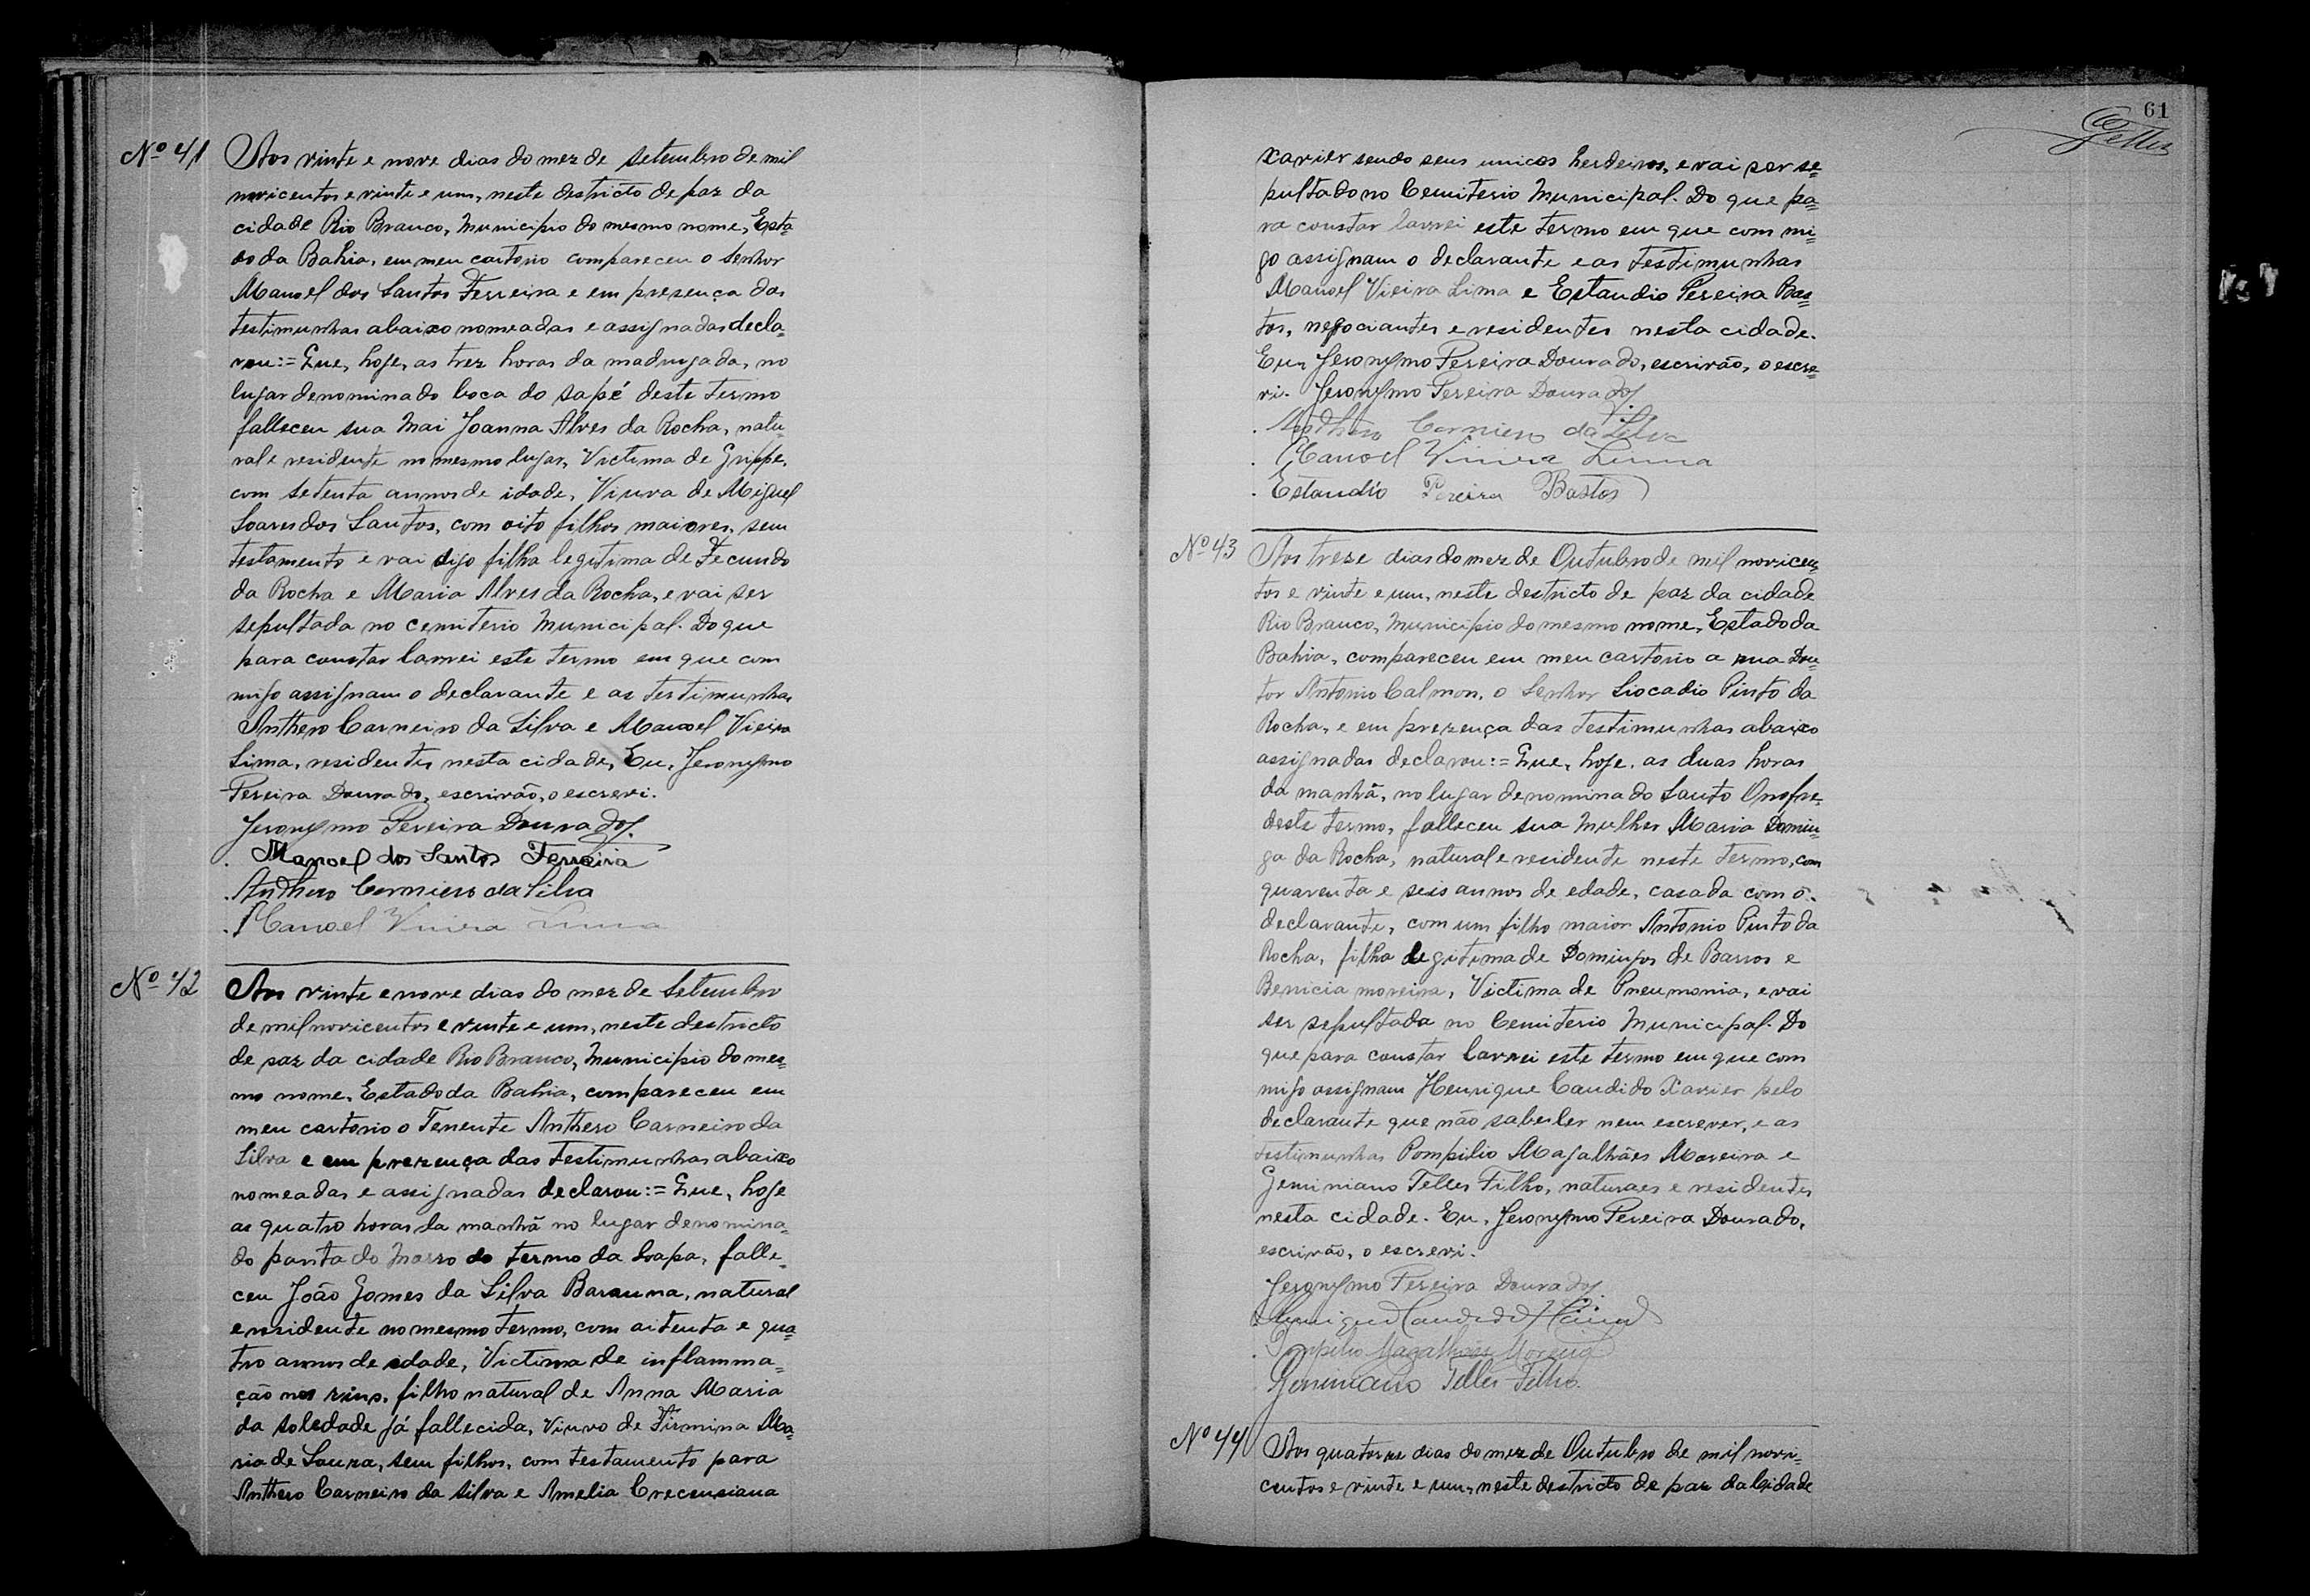 Nº 41 Aos vinte e nove dias do mez de setembro de mil
novicentos e vinte e um, neste destricto de paz da
cidade Rio Branco, Municipio do mesmo nome, Esta=
do da Bahia, em meu cartorio compareceu o senhor
Manoel dos Santos Ferreira e em presença das
testimunhas abaixo nomeadas e assignadas decla=
rou:= Que, hoje, as trez horas da madrugada, no
lugar denominado boca do sapé deste termo
falleceu sua Mai Joanna Alves da Rocha, natu=
ral e residente no mesmo lugar, Victima de Grippe,
com setenta annos de idade, Viuva de Miguel
Soares dos Santos, com oito filhos maiores, sem
testamento e vai digo filha legitima de Fecundo
da Rocha e Maria Alves da Rocha, e vai ser
sepultada no cemiterio Municipal. Do que
para constar lavrei este termo em que com
migo assignam o declarante e as testimunhas
Anthero Carneiro da Silva e Manoel Vieira
Lima, residentes nesta cidade, Eu, Jeronymo
Pereira Dourado, escrivão, o escrevi.
Jeronymo Pereira Dourado
Manoel dos Santos Ferreira
Anthero Carniero da Silva
Manoel Vieira Lima
Nº 42 Aos vinte e nove dias do mez de Setembro
de mil novicentos e vinte e um, neste destricto
de paz da cidade Rio Branco, Municipio do mes=
mo nome, Estado da Bahia, compareceu em
meu cartorio o Tenente Anthero Carneiro da
Silva e em prezença das testimunhas abaixo
nomeadas e assignadas declarou:= Que, hoje
as quatro horas da manhã no lugar denomina=
do ponta do Morro do termo da Lapa, falle=
ceu João Gomes da Silva Barauna, natural
e residente no mesmo termo, com oitenta e qua=
tro annos de edade, Victima de inflamma=
ção nos rins, filho natural de Anna Maria
da Soledade já fallecida, Viuvo de Firmina Ma=
ria de Souza, sem filhos, com testamento para
Anthero Carneiro da Silva e Amelia Crecenciana
61
Telles
Xavier sendo seus unicos herdeiros, e vai ser se=
pultado no Cemiterio Municipal. Do que pa=
ra constar lavrei este termo em que com mi=
go assignam o declarante e as testimunhas
Manoel Vieira Lima e Estaudio Pereira Bas=
tos, negociantes e residentes nesta cidade.
Eu, Jeronymo Pereira Dourado, escrivão, o escre=
vi. Jeronymo Pereira Dourado
Anthero Carniero da Silva
Manoel Vieira Lima
Estaudio Pereira Bastos
Nº 43 Aos treze dias do mez de Outubro de mil novicen=
tos e vinte e um, neste destricto de paz da cidade
Rio Branco, Municipio do mesmo nome, Estado da
Bahia, compareceu em meu cartorio a rua Dou=
tor Antonio Calmon, o Senhor Liocadio Pinto da
Rocha, e em prezença das testimunhas abaixo
assignadas declarou:= Que, hoje, as duas horas
da manhã, no lugar denominado Santo Onofre,
deste termo, falleceu sua Mulher Maria Domin=
ga da Rocha, natural e residente neste termo, com
quarenta e seis annos de edade, casada com o
declarante, com um filho maior Antonio Pinto da
Rocha, filha legitima de Domingos de Barros e
Benicia moreira, Victima de Pneumonia, e vai
ser sepultada no Cemiterio Municipal. Do
que para constar lavrei este termo em que com
migo assignam Henrique Candido Xavier pelo
declarante que não sabe ler nem escrever, e as
testimunhas Pompilio Magalhães Moreira e
Geminiano Telles Filho, naturaes e residentes
nesta cidade. Eu, Jeronymo Pereira Dourado,
escrivão, o escrevi.
Jeronymo Pereira Dourado
Henrique Candido Xavier
Pompilio Magalhães Moreira
Geminiano Telles Filho
Nº 44 Aos quatorze dias do mez de Outubro de mil novi=
centos e vinte e um, neste destricto de paz da Cidade